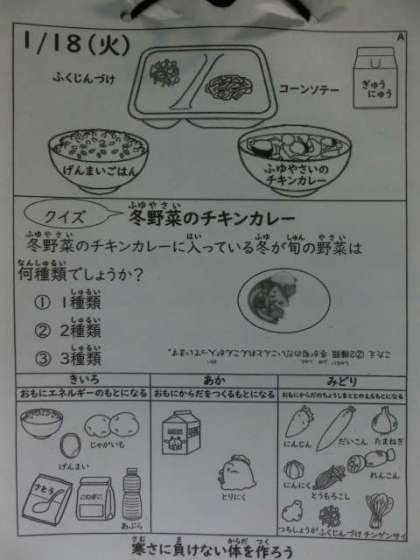 1/18(火)
A
ふくじんづけ
コーンソテー
ぎゅうにゅう
げんまいごはん
ふゆやさいのチキンカレー
クイズ
冬野菜のチキンカレー
冬野菜のチキンカレーに入っている冬が旬の野菜は
何種類でしょうか?
① 1種類
② 2種類
③ 3種類
こたえ ②2種類 冬が旬のだいこんとれんこんが入っています。
きいろ
あか
みどり
おもにエネルギーのもとになる
おもにからだをつくるもとになる
おもにからだのちょうしをととのえるもとになる
じゃがいも
げんまい
さとう
こむぎこ
あぶら
とりにく
にんじん
だいこん
たまねぎ
にんにく
とうもろこし
れんこん
つちしょうが
ふくじんづけ
チンゲンサイ
寒さに負けない体を作ろう